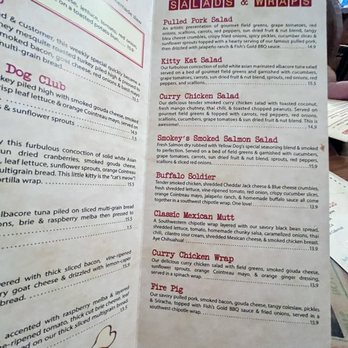 on a toasted potato
nd & customer, this weekly special quickly
smoked bacon, goat cheese, red onions &
multi-grain bread.
Dog Club
key piled high with smoked gouda cheese,
risp leaf lettuce & orange Cointreau mayo,
y this furbulous concoction of solid white Asian
un dried cranberries, smoked gouda cheese,
leaf lettuce, sunflower sprouts, orange Cointreau
multigrain bread. This little kitty is the "cat's meow"
tortilla wrap.
lbacore tuna piled on sliced multi-grain bread
ons, brie & raspberry melba then pressed to
ered with thick sliced bacon, vine-ripened
y goat cheese & drizzled with lemon
bread.
accented with raspberry melba & layered
ne-ripened tomato, thick cut bacon,
d on our thick sliced multigrain bread
SALADS & WRAPS
Pulled Pork Salad
An artistic presentation of gourmet field greens, grape tomatoes, red
onions, scallions, carrots, red peppers, sun dried fruit & nut blend, tangy
bleu cheese crumbles, crispy fried onions, spicy pickles, cucumber slices &
sunflower sprouts topped with a hearty serving of our famous pulled pork
then drizzled with jalapeño ranch & Fish's Gold BBQ sauce. 14.9
Kitty Kat Salad
Our furbulous concoction of solid white asian marinated albacore tuna salad
served on a bed of gourmet field greens and garnished with cucumbers,
grape tomatoes, carrots, sun dried fruit & nut blend, sprouts, red onions, red
peppers, and scallions. 15.9
Curry Chicken Salad
Our delicious tender smokey curry chicken salad with toasted coconut,
fresh mango chutney, thai chili, & toasted chopped peanuts. Served on
gourmet field greens & topped with carrots, red peppers, red onions,
cucumbers, grape tomatoes & our sun dried fruit & nut blend. This is
awesome! 15.9
Smokey's Smoked Salmon Salad
Fresh Salmon dry rubbed with Yellow Dog's special seasoning blend & smoked
to perfection. Served on a bed of field greens and garnished with cucumbers,
grape tomatoes, carrots, sun dried fruit & nut blend, sprouts, red peppers,
scallions & sliced red onions. 15.9
Buffalo Soldier
Tender smoked chicken, shredded Cheddar Jack cheese & Blue cheese crumbles,
fresh shredded lettuce, vine-ripened tomato, red onion, crispy cucumber slices,
orange Cointreau mayo, jalapeño ranch, & buffalo hotsauce all come
together in a southwest chipotle wrap. One love! 13.9
Classic Mexican Mutt
A Southwestern chipotle wrap layered with our savory black bean spread,
shredded lettuce, tomato, homemade chunky salsa, caramelized onions, thai
chili, cilantro sour cream, shredded Mexican cheese, & smoked chicken breast.
Aye Chihuahua! 13.9
Curry Chicken Wrap
Our delicious curry chicken salad with field greens, smoked gouda cheese,
sunflower sprouts, orange Cointreau mayo, & orange ginger dressing,
served in a spinach wrap. 13.9
Fire Pig
Our savory pulled pork, smoked bacon, gouda cheese, tangy coleslaw, pickles
& Sriracha, topped with Fish's Gold BBQ sauce & fried onions, served in a
southwest chipotle wrap. 13.9